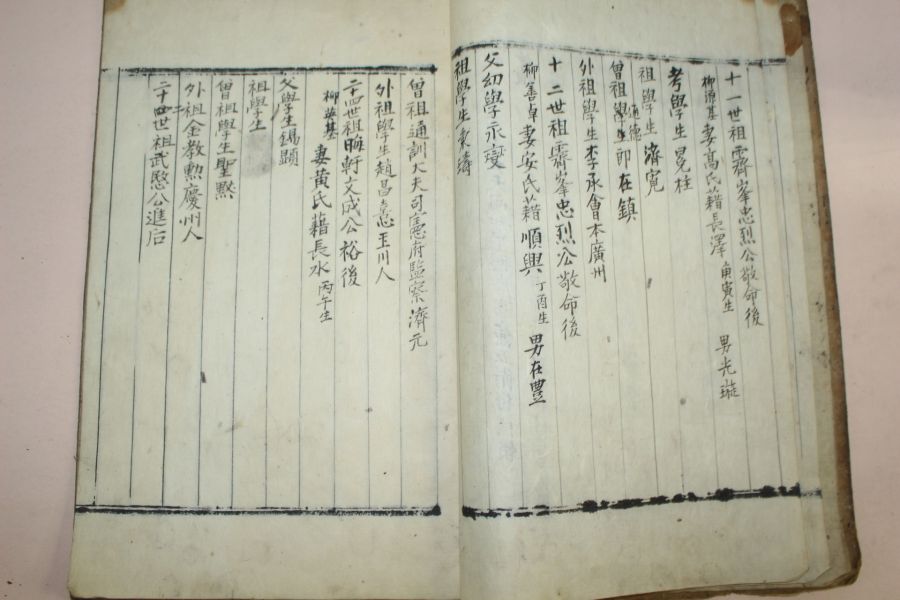 十一世祖霽峯忠烈公敬命後
柳源基 妻高氏藉長澤 庚寅生 男光璇
考學生冕柱
祖學生 濟寬
曾祖 通德郎 在鎮
外祖學生李承會本廣州
十二世祖霽峯忠烈公敬命後
柳善卓 妻安氏藉順興 丁酉生 男在豊
父幼學永燮
祖學生 濤
曾祖通訓大夫司憲府監察濟元
外祖學生趙昌憙玉川人
二十四世祖晦軒文成公裕後
柳英基 妻黃氏藉長水 丙午生
父學生錫顯
祖學生
曾祖學生聖黙
外祖金教勲慶州人
二十四世祖武愍公進后